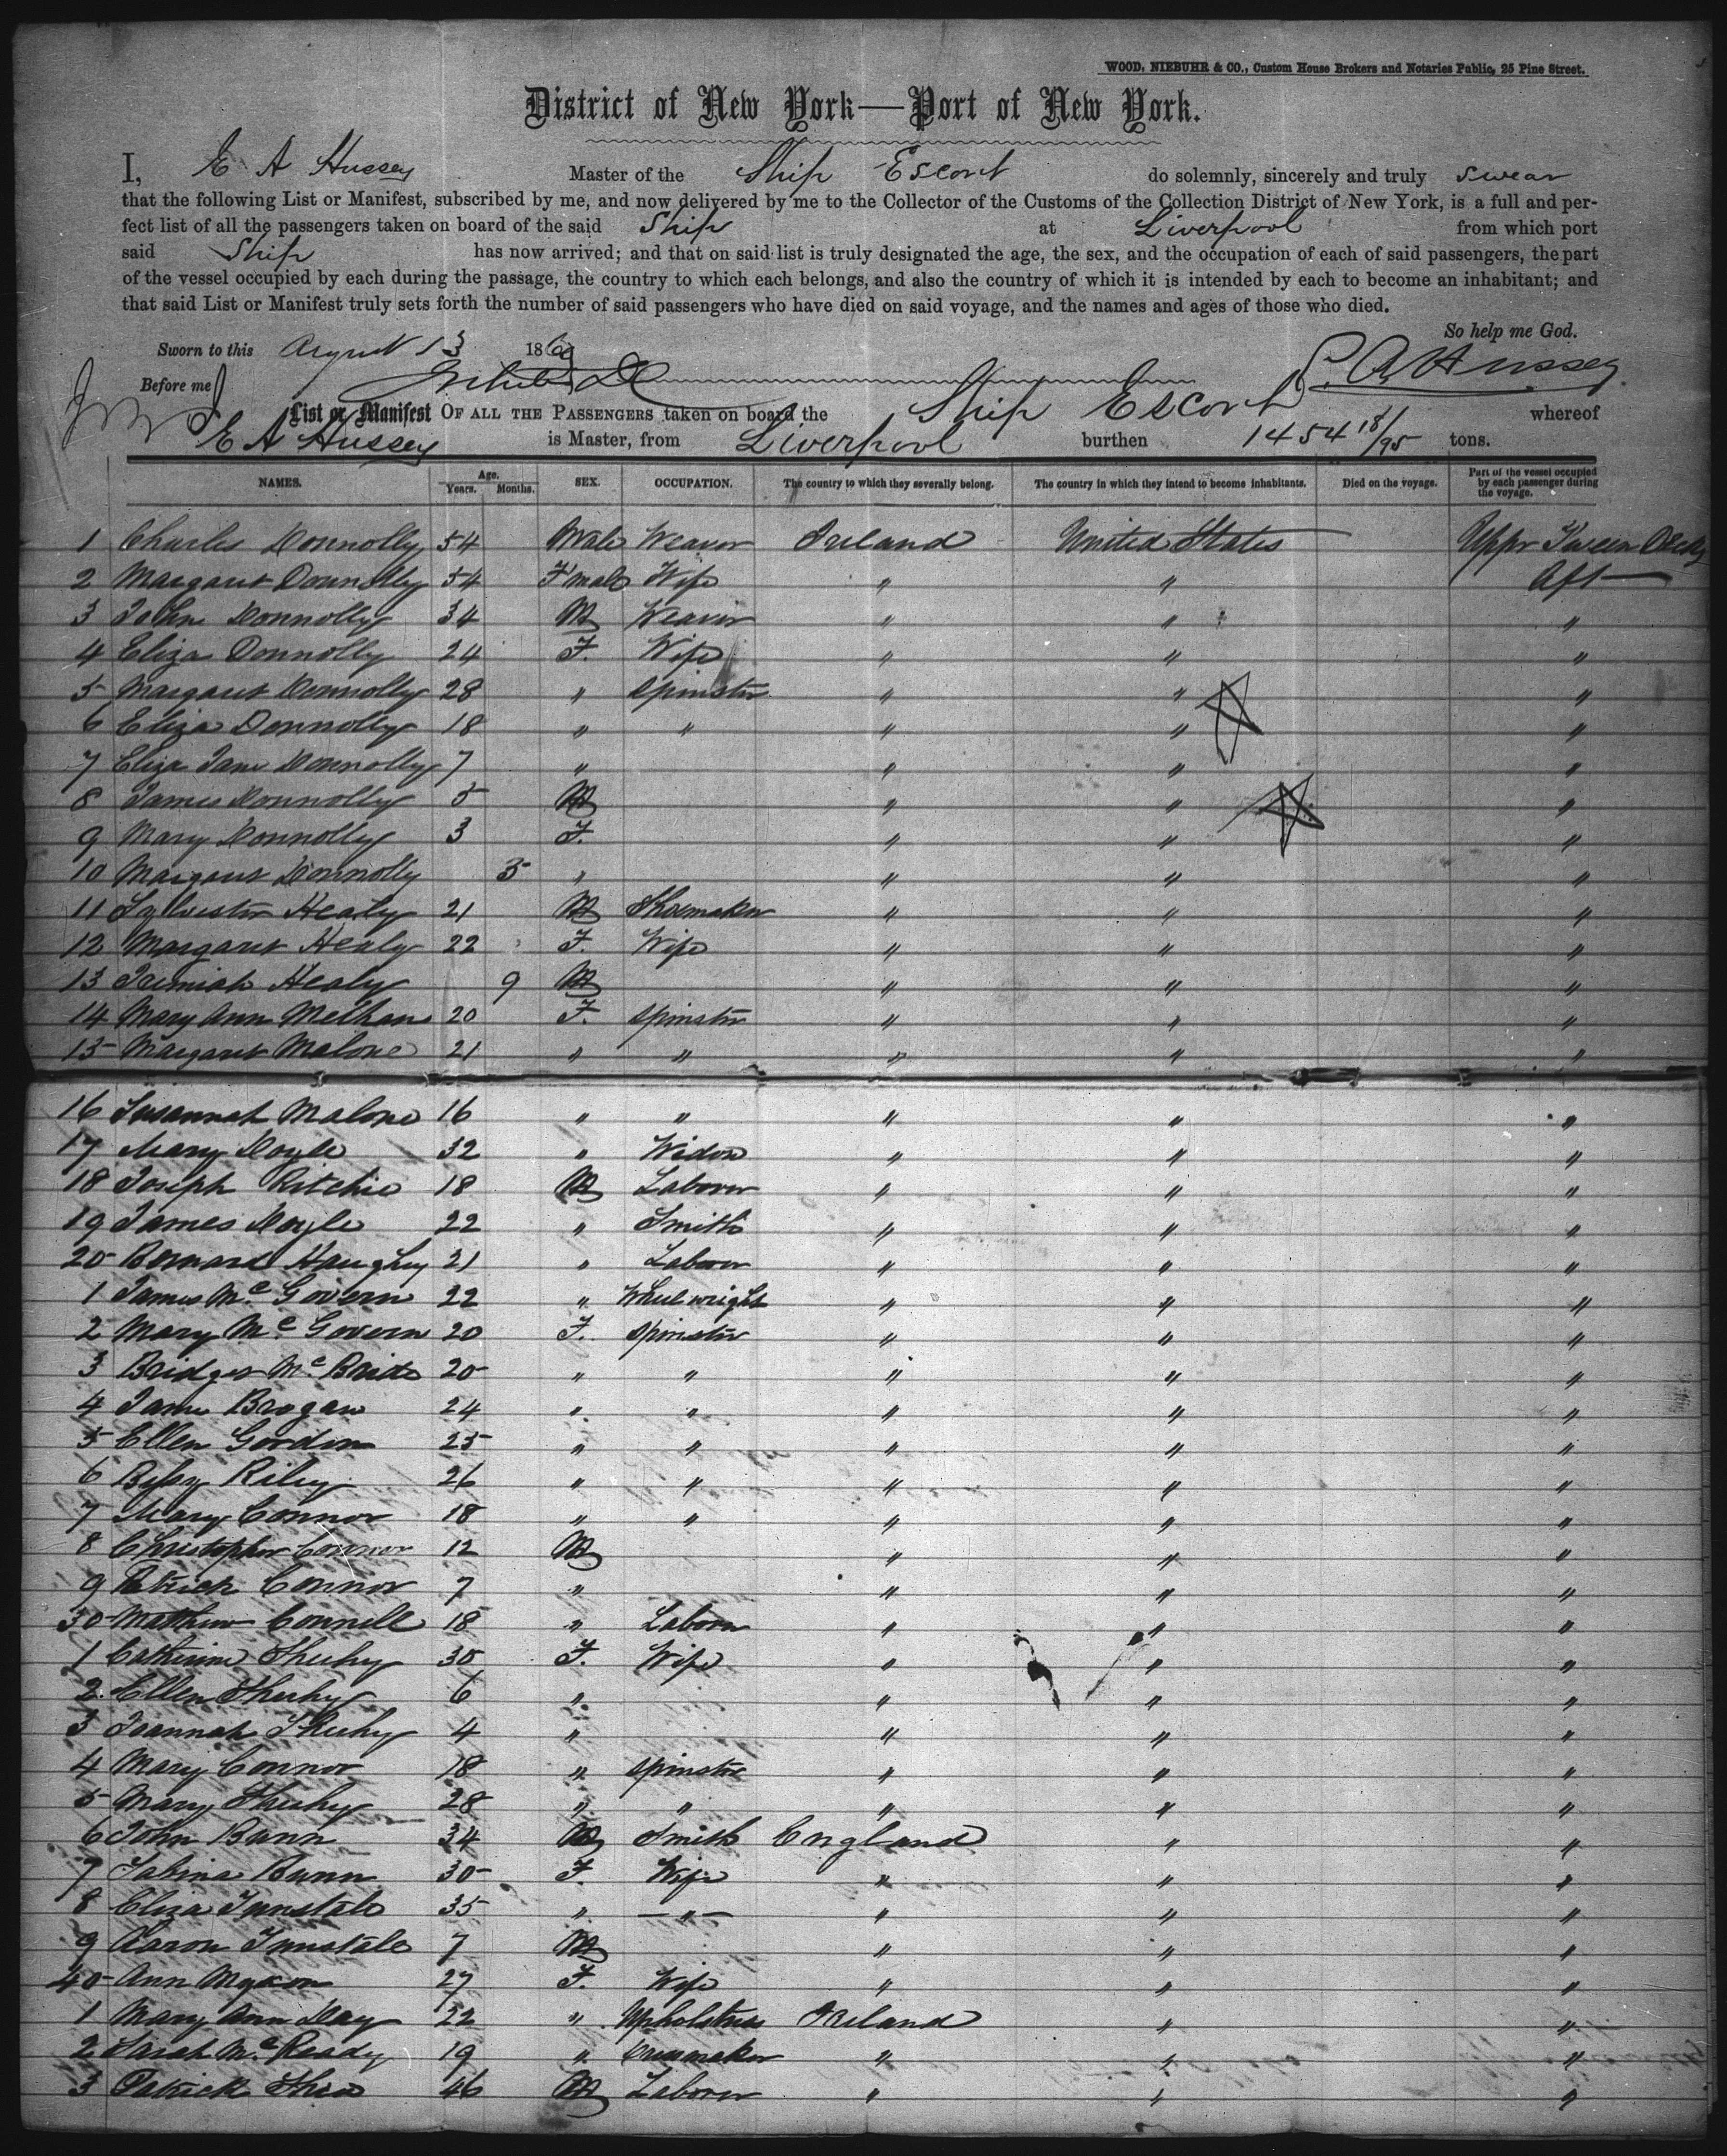 WOOD, NIEBUHR & CO., Custom House Brokers and Notaries Public, 25 Pine Street.
District of New York—Port of New York.
I, E A Hussey Master of the Ship Escort do solemnly, sincerely and truly swear
that the following List or Manifest, subscribed by me, and now delivered by me to the Collector of the Customs of the Collection District of New York, is a full and per-
fect list of all the passengers taken on board of the said Ship at Liverpool from which port
said Ship has now arrived; and that on said list is truly designated the age, the sex, and the occupation of each of said passengers, the part
of the vessel occupied by each during the passage, the country to which each belongs, and also the country of which it is intended by each to become an inhabitant; and
that said List or Manifest truly sets forth the number of said passengers who have died on said voyage, and the names and ages of those who died.
So help me God.
Sworn to this August 13 1869
E A Hussey
Before me
List or Manifest OF ALL THE PASSENGERS taken on board the Ship Escort whereof
E A Hussey is Master, from Liverpool burthen 1454 18/95 tons.
NAMES. Age. Years. Months. SEX. OCCUPATION. The country to which they severally belong. The country in which they intend to become inhabitants. Died on the voyage. Part of the vessel occupied by each passenger during the voyage.
1 Charles Donnolly 54 Male Weaver Ireland United States Uppr Tween Decks
2 Margaret Donnolly 54 Fmale Wife " " Aft
3 John Donnolly 34 M Weaver " " "
4 Eliza Donnolly 24 F. Wife " " "
5 Margaret Donnolly 28 " Spinster " " "
6 Eliza Donnolly 18 " " " " "
7 Eliza Jane Donnolly 7 " " " "
8 James Donnolly 5 M " " "
9 Mary Donnolly 3 F. " " "
10 Margaret Donnolly 5 " " " "
11 Sylvester Healy 21 M Shoemaker " " "
12 Margaret Healy 22 F. Wife " " "
13 Jeremiah Healy 9 M " " "
14 Mary Ann Methan 20 F. Spinster " " "
15 Margaret Malone 21 " " " " "
16 Susannah Malone 16 " " " " "
17 Mary Doyle 32 " Widow " " "
18 Joseph Ritchie 18 M Laborer " " "
19 James Doyle 22 " Smith " " "
20 Bernard Haughey 21 " Laborer " " "
1 James McGovern 22 " Wheelwright " " "
2 Mary McGovern 20 F. Spinster " " "
3 Bridget McBride 20 " " " " "
4 Jane Brogan 24 " " " " "
5 Ellen Gordon 25 " " " " "
6 Betsy Riley 26 " " " " "
7 Mary Connor 18 " " " " "
8 Christopher Connor 12 M " " "
9 Patrick Connor 7 " " " "
30 Mathew Connell 18 " Laborer " " "
1 Catherine Sheehy 30 F. Wife " " "
2 Ellen Sheehy 6 " " " "
3 Joannah Sheehy 4 " " " "
4 Mary Connor 18 " Spinster " " "
5 Mary Sheehy 28 " " " " "
6 John Bunn 34 M Smith England " "
7 Sabina Bunn 30 F. Wife " " "
8 Eliza Tunstale 35 " " " " "
9 Aaron Tunstale 7 M " " "
40 Ann 27 F. Wife " " "
1 Mary Ann Day 22 " Upholstress Ireland " "
2 Sarah McReady 19 " Dressmaker " " "
3 Patrick Shea 46 M Laborer " " "